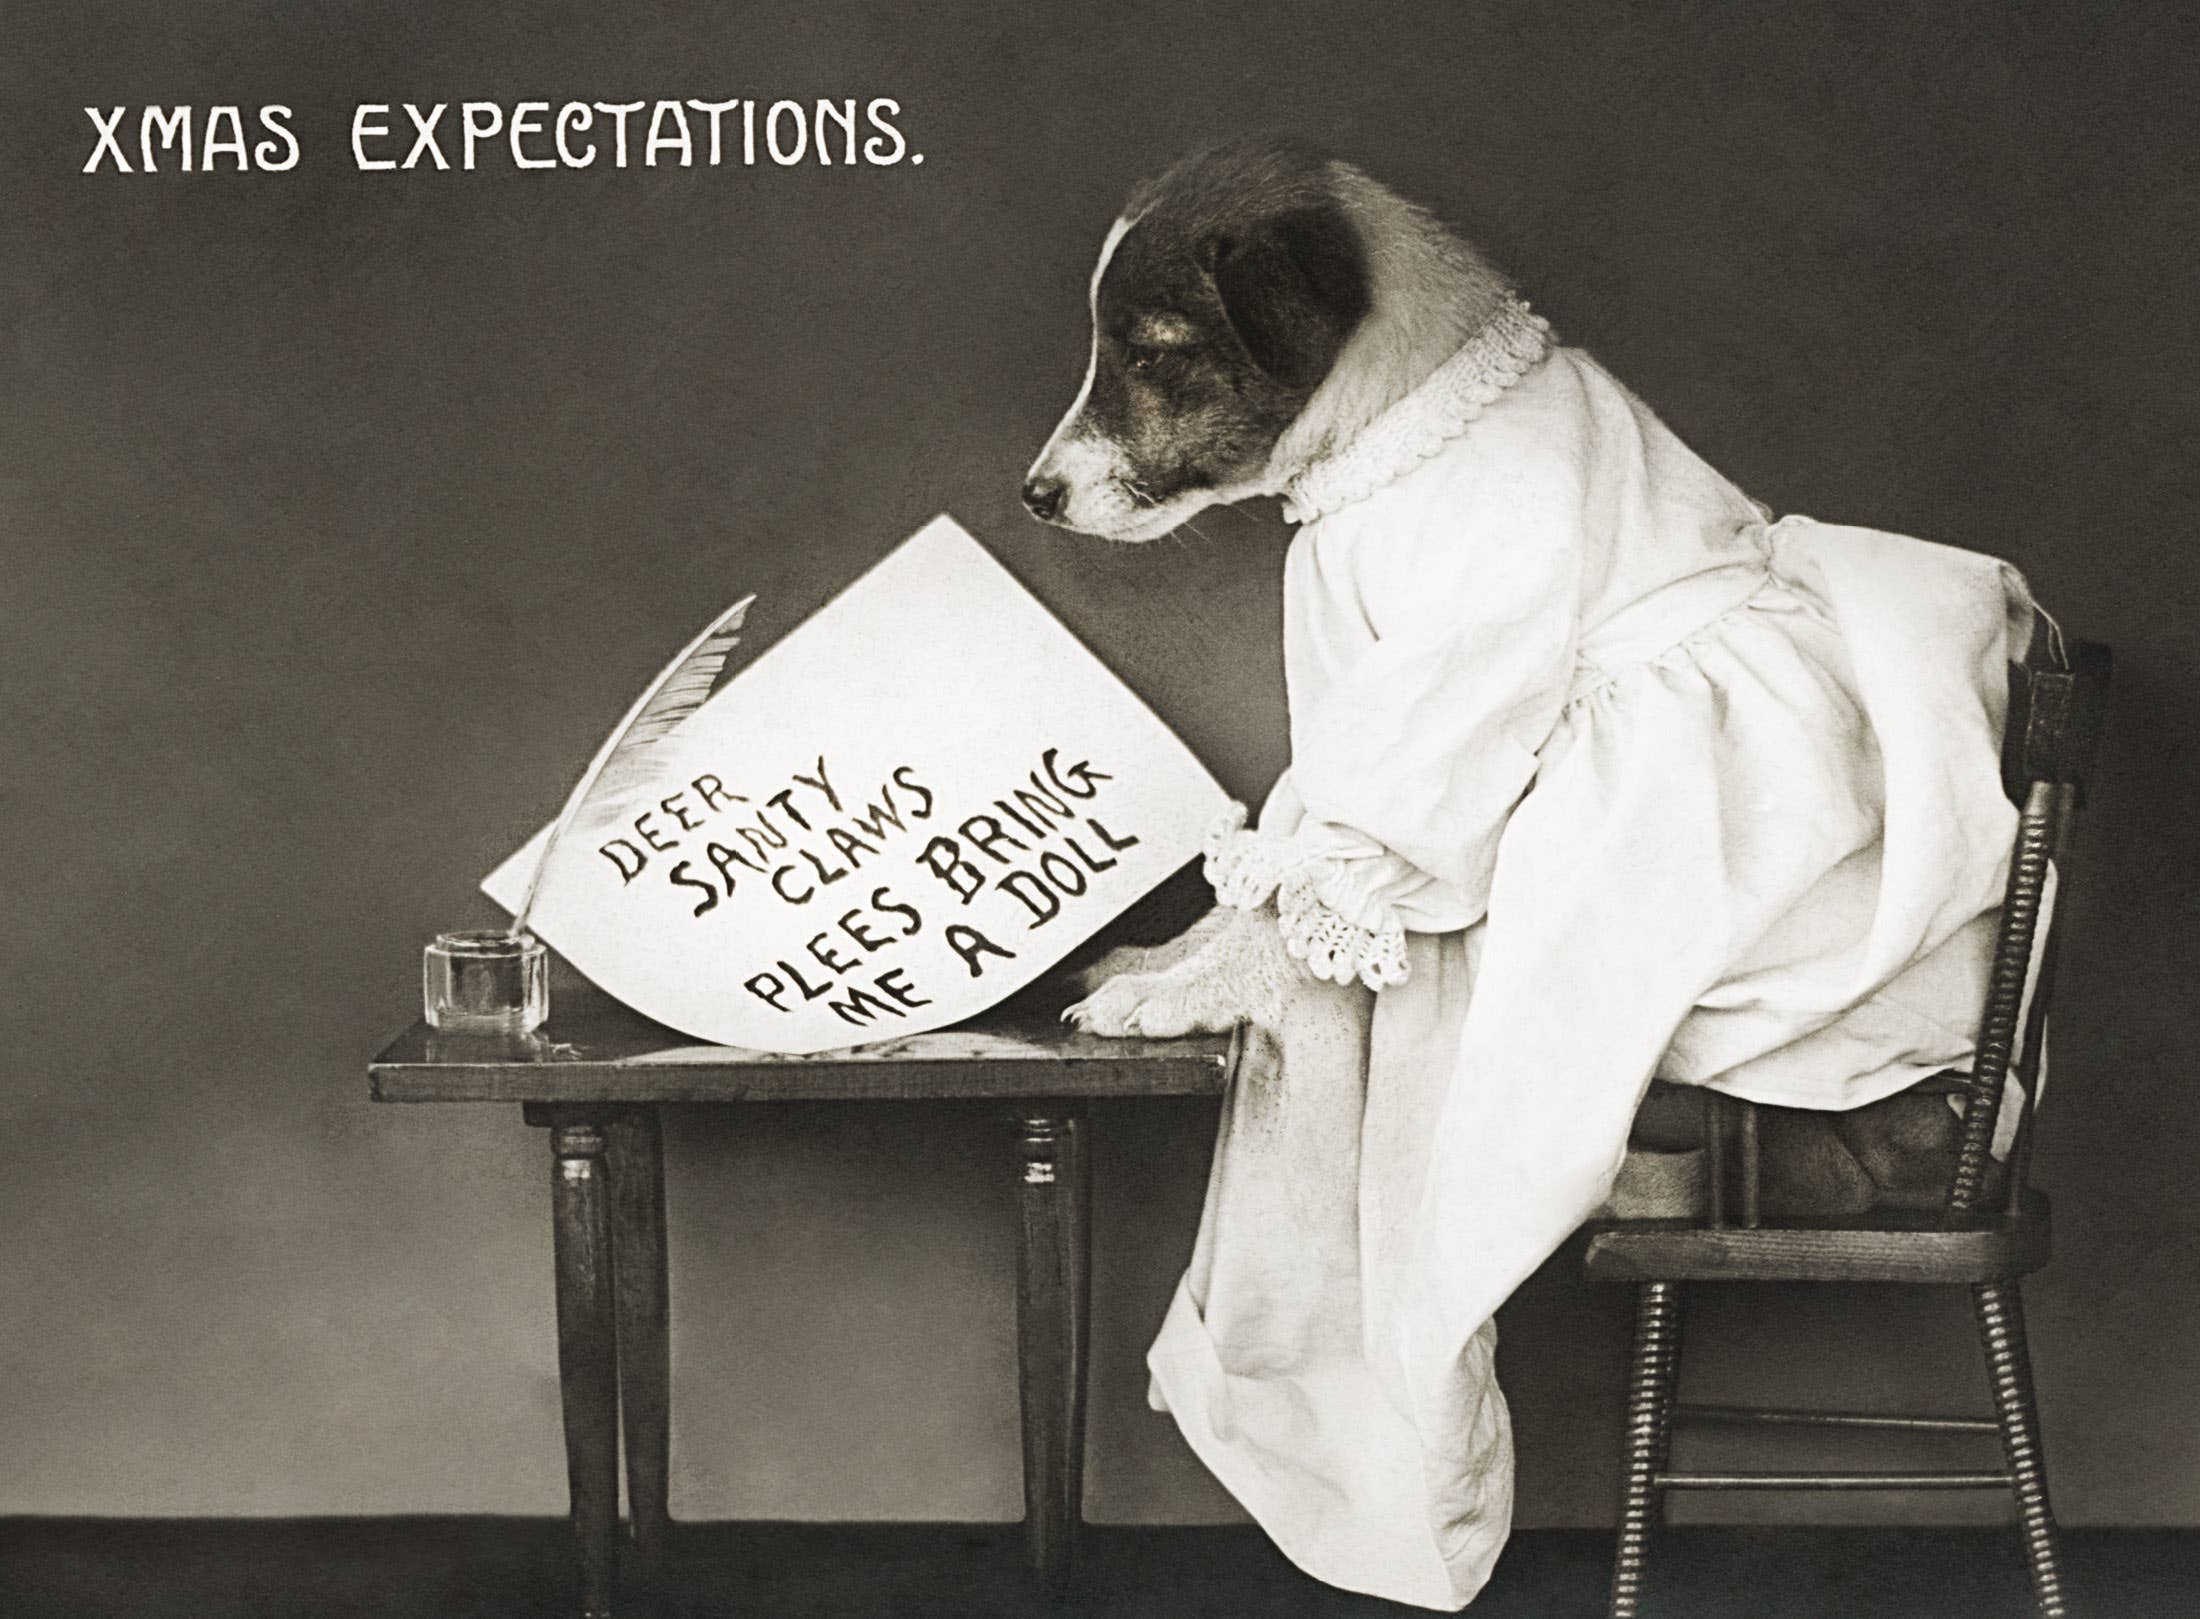 XMAS EXPECTATIONS.
DEER
SANTY
CLAWS
PLEES BRING
ME A DOLL